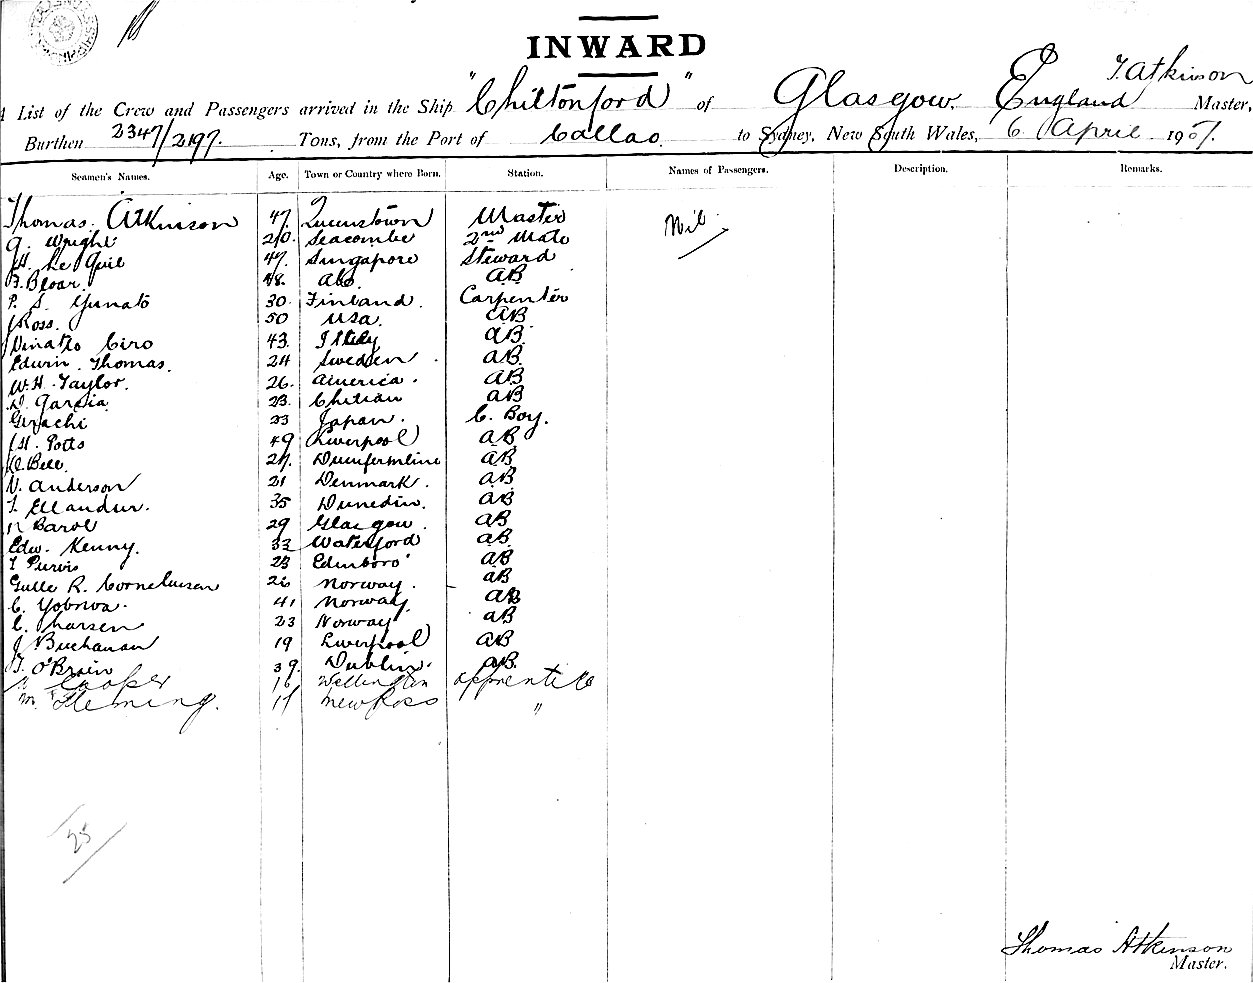 INWARD
A List of the Crew and Passengers arrived in the Ship "Chiltonford" of Glasgow, England T. Atkinson Master,
Burthen 2347/2197. Tons, from the Port of Callao. to Sydney, New South Wales, 6 April 1907.
Seamen's Names. Age. Town or Country where Born. Station. Names of Passengers. Description. Remarks.
Thomas. Atkinson 47. Queenstown Master Nil.
A. Wright 20. Seacombe 2nd Mate
47. Singapore Steward
48. AB
P. S. 30. Finland. Carpenter
J Ross. 50 USA. AB
Ciro 43. Italy AB
Edwin. Thomas. 24 Sweden. AB
W.H. Taylor. 26. America. AB
Garcia 23. Chilian AB
33 Japan. C. Boy.
J H. Potts 49 Liverpool AB
Bell. 27. Dunfermline AB
N. Anderson 21 Denmark. AB
35 Dunedin. AB
29 Glasgow. AB
Edw. Kenny. 32 Waterford AB
Purvis 23 Edinboro' AB
R. Corneliusen 26 Norway. AB
C. 41 Norway. AB
C. Tharsen 23 Norway AB
J Buchanan 19 Liverpool AB
T. O'Brien 39. Dublin. AB.
Cooper 16 Wellington Apprentice
M. Fleming. 17 New Ross "
25
Thomas Atkinson
Master.